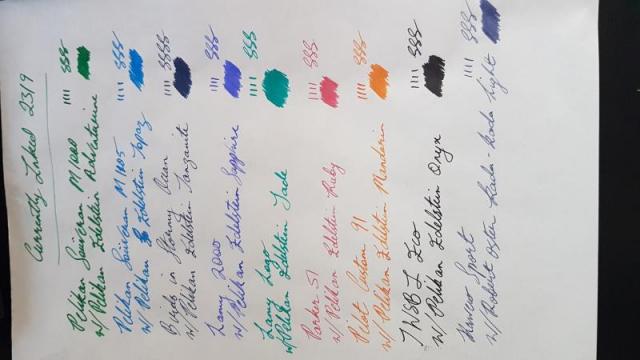 Currently Inked 23/9
Pelikan Souverän M1000
w/ Pelikan Edelstein Adventurine
Pelikan Souverän M1005
w/ Pelikan Edelstein Topaz
Birds in Stormy Ocean
w/ Pelikan Edelstein Tanzanite
Lamy 2000
w/ Pelikan Edelstein Sapphire
Lamy Logo
w/ Pelikan Edelstein Jade
Parker 51
w/ Pelikan Edelstein Ruby
Pilot Custom 91
w/ Pelikan Edelstein Mandarin
TWSBI Eco
w/ Pelikan Edelstein Onyx
Kaweco Sport
w/ Robert Oster Light